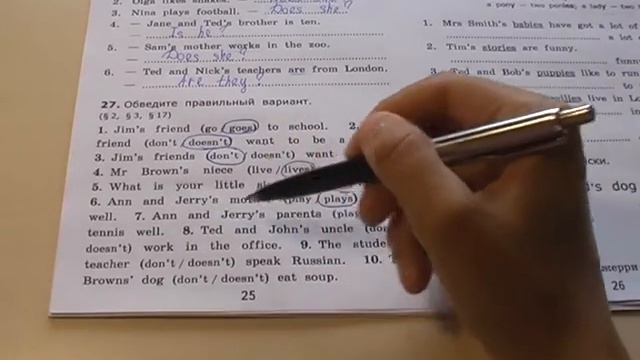 2. Olga likes
3. Nina plays football. — Does she?
4. — Jane and Ted's brother is ten.
— Is he?
5. — Sam's mother works in the zoo.
— Does she?
6. — Ted and Nick's teachers are from London.
— Are they?
27. Обведите правильный вариант.
(§ 2, § 3, § 17)
1. Jim's friend (go / goes) to school. 2.
friend (don't / doesn't) want to be a
3. Jim's friends (don't / doesn't) want
4. Mr Brown's niece (live / lives)
5. What is your little
6. Ann and Jerry's (play / plays)
well. 7. Ann and Jerry's parents (play
tennis well. 8. Ted and John's uncle
doesn't) work in the office. 9. The
teacher (don't / doesn't) speak Russian. 10.
Browns' dog (don't / doesn't) eat soup.
25
a pony — two ponies, a lady — two
1. Mrs Smith's babies have got a lot of
a lot
2. Tim's stories are funny.
funny
3. Ted and Bob's puppies like to
live in
's dog
26